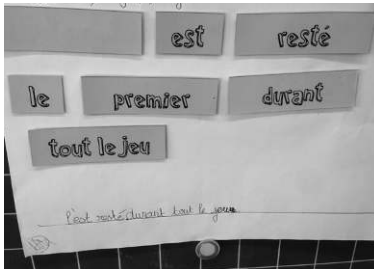 est resté
le premier durant
tout le jeu
l'est resté durant tout le jeu